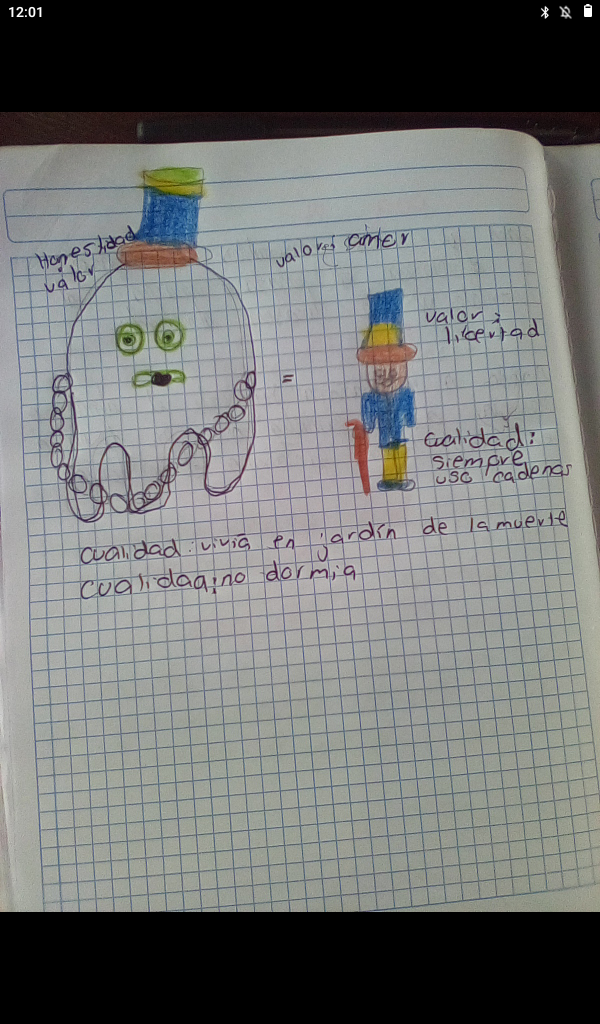 12:01
Honestidad
valor
valor: amor
=
valor:
libertad
cualidad:
siempre
uso cadenas
cualidad: vivia en jardín de la muerte
cualidad: no dormia